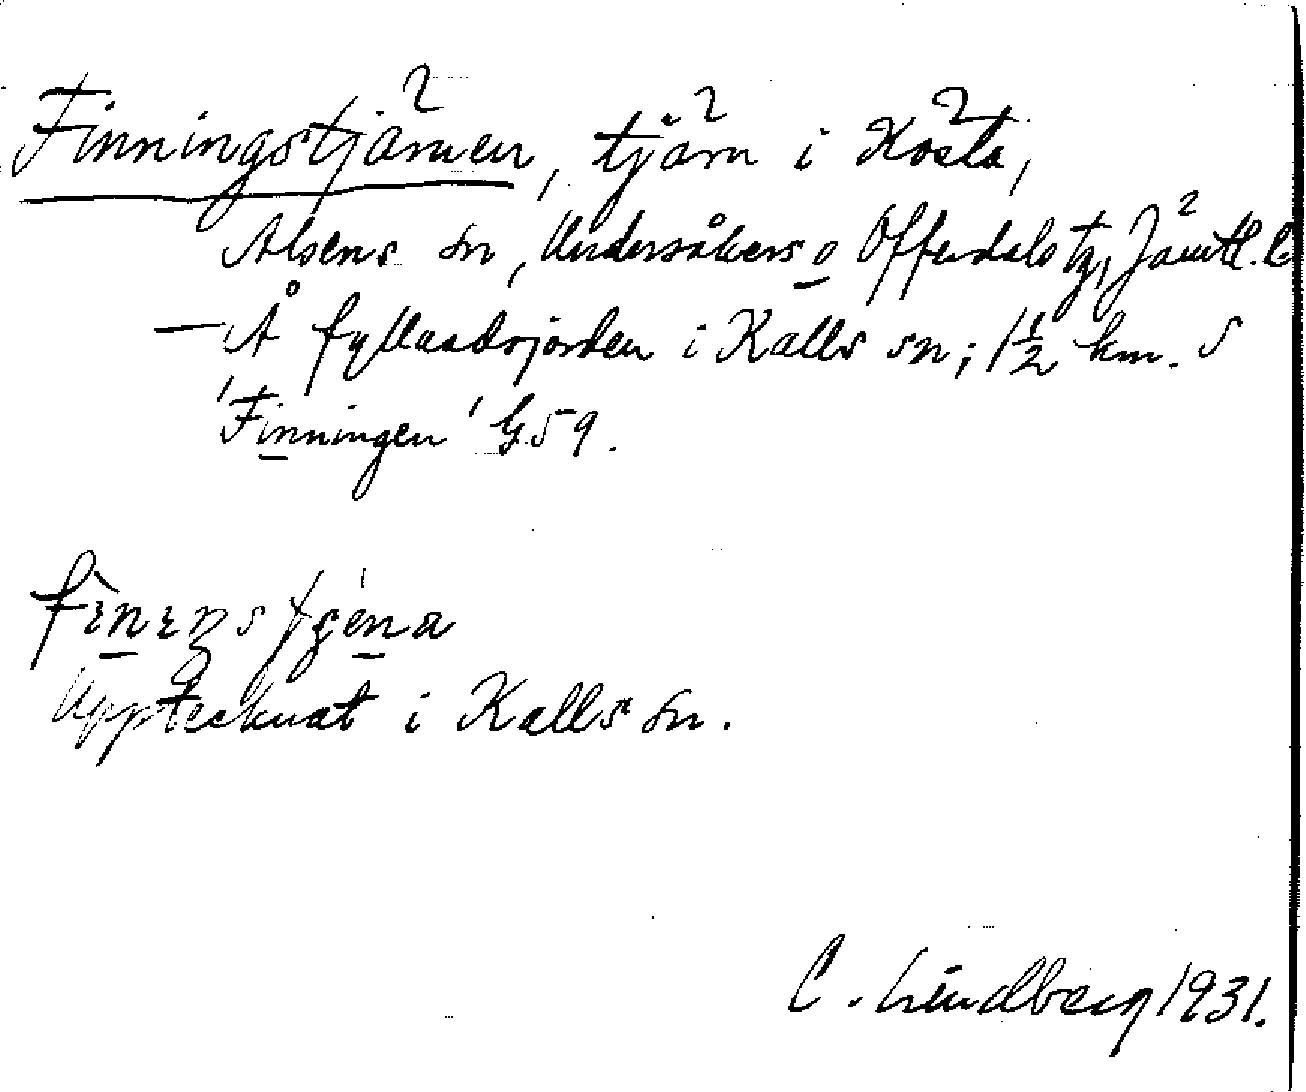 Finningstjärnen, tjärn i Kösta,
Alsens sn, Undersåkers o Offerdals tg, Jämtl. l
— Å fyllnadsjorden i Kalls sn; 1½ km. S
'Finningen' G59.
Upptecknat i Kalls sn.
C. Lindberg 1931.